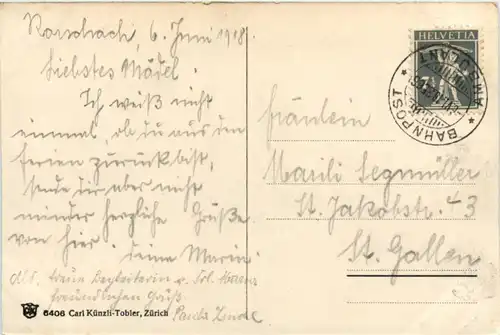 Rorschach, 6. Juni 1918.
Liebstes Mädel.
Ich weiß nicht
einmal, ob du aus den
Ferien zurück bist,
sende dir aber nicht
minder herzliche Grüße
von hier. deine Marie.
Als treue Begleiterin v. Frl.
freundlichen Gruß
6406 Carl Künzli-Tobler, Zürich
HELVETIA
BAHNPOST
AMBULANT
Fräulein
Marili Segmüller
St. Jakobstr. 43
St. Gallen